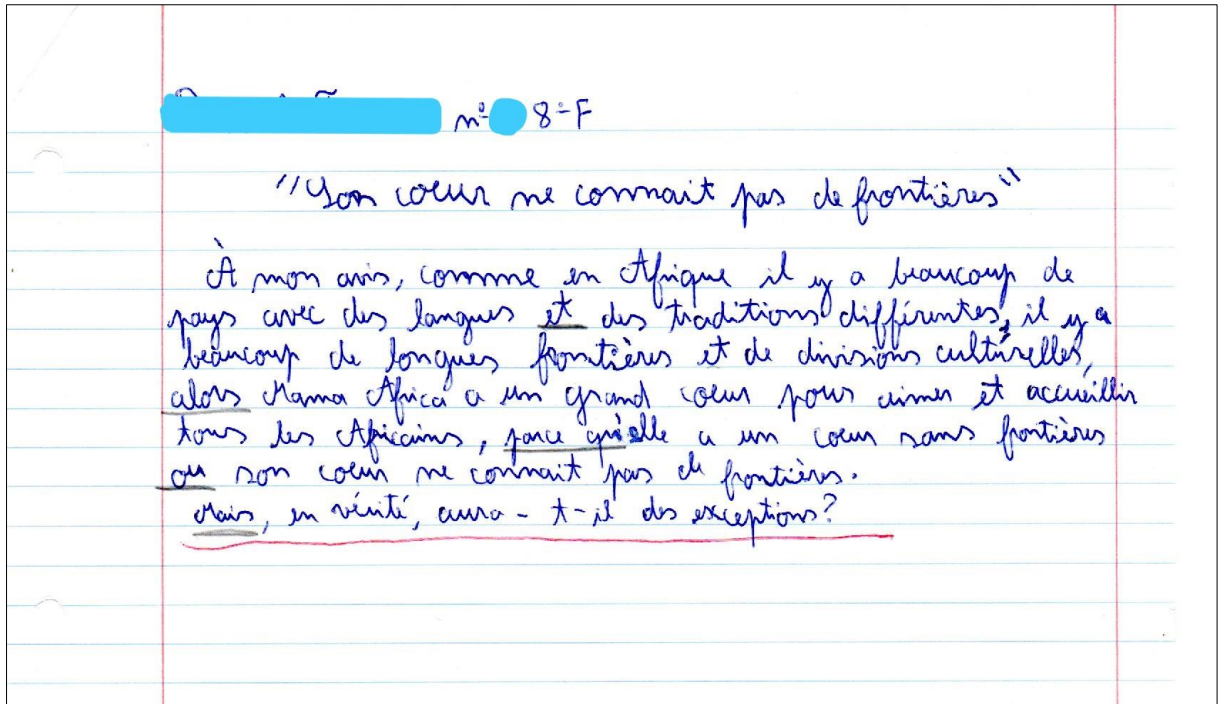 nº 8º F
"Son coeur ne connait pas de frontières"
À mon avis, comme en Afrique il y a beaucoup de
pays avec des langues et des traditions différentes, il y a
beaucoup de longues frontières et de divisions culturelles,
alors Mama Africa a un grand coeur pour aimer et accueillir
tous les Africains, parce qu'elle a un coeur sans frontières
ou son coeur ne connait pas de frontières.
Mais, en vérité, aura-t-il des exceptions?